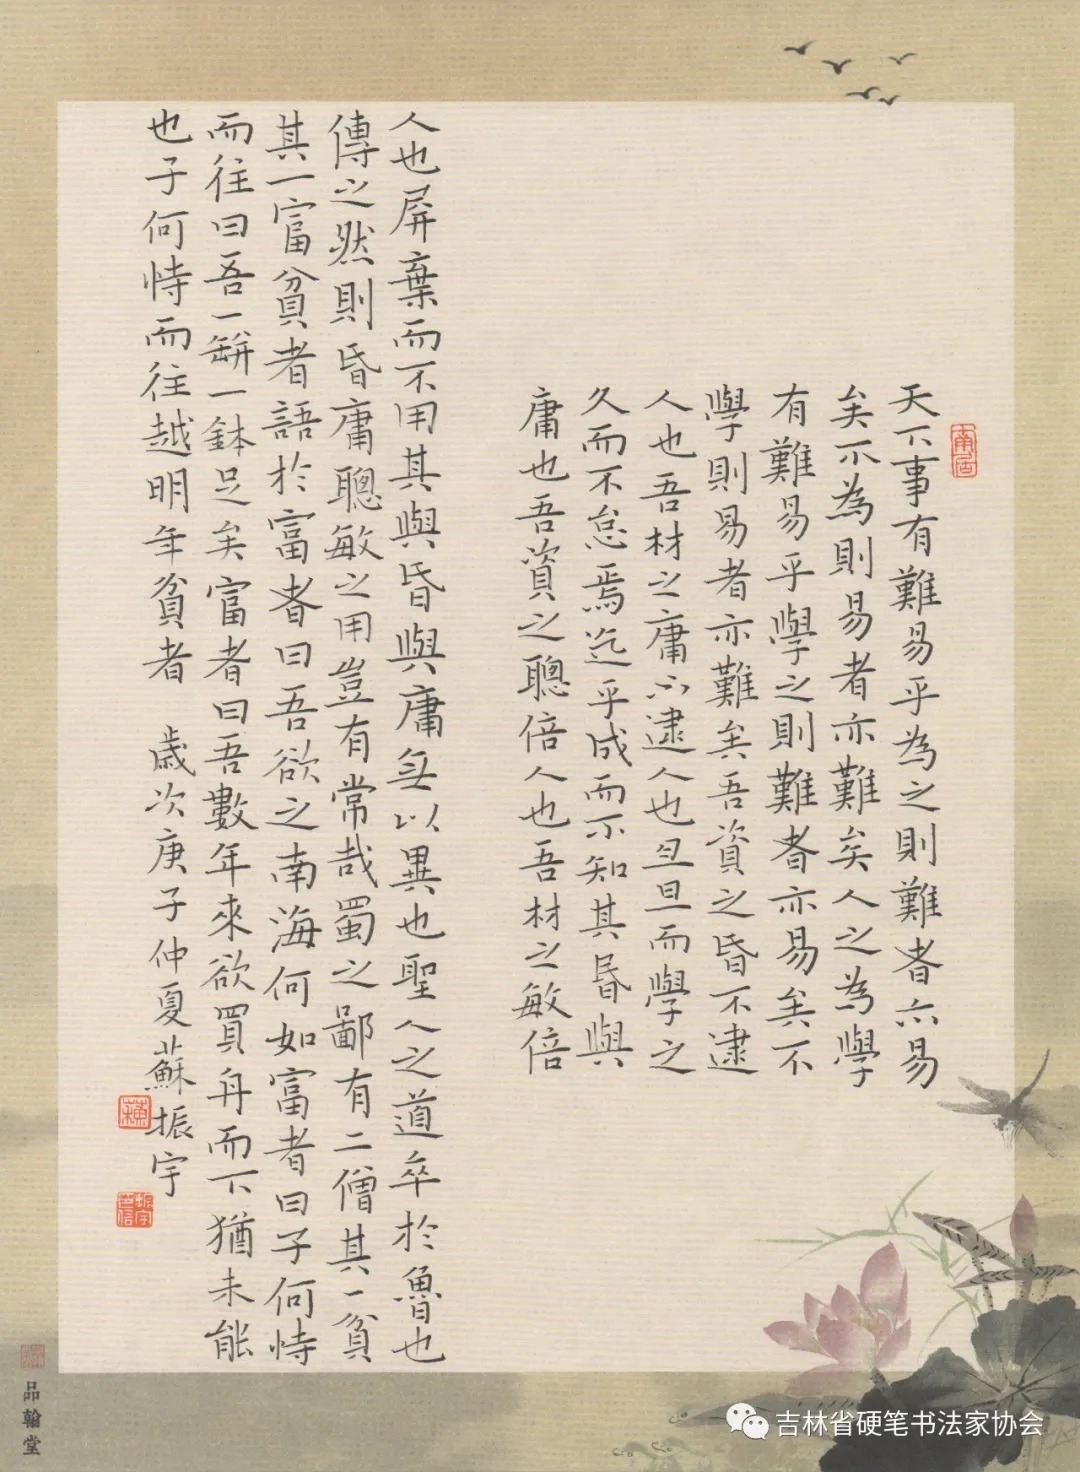 天下事有難易乎為之則難者亦易
矣不為則易者亦難矣人之為學
有難易乎學之則難者亦易矣不
學則易者亦難矣吾資之昏不逮
人也吾材之庸不逮人也旦旦而學之
久而不怠焉迄乎成而不知其昏與
庸也吾資之聰倍人也吾材之敏倍
人也屏棄而不用其與昏與庸無以異也聖人之道卒於魯也
傳之然則昏庸聰敏之用豈有常哉蜀之鄙有二僧其一貧
其一富貧者語於富者曰吾欲之南海何如富者曰子何恃
而往曰吾一缾一鉢足矣富者曰吾數年來欲買舟而下猶未能
也子何恃而往越明年貧者 歲次庚子仲夏蘇振宇
品翰堂
吉林省硬笔书法家协会